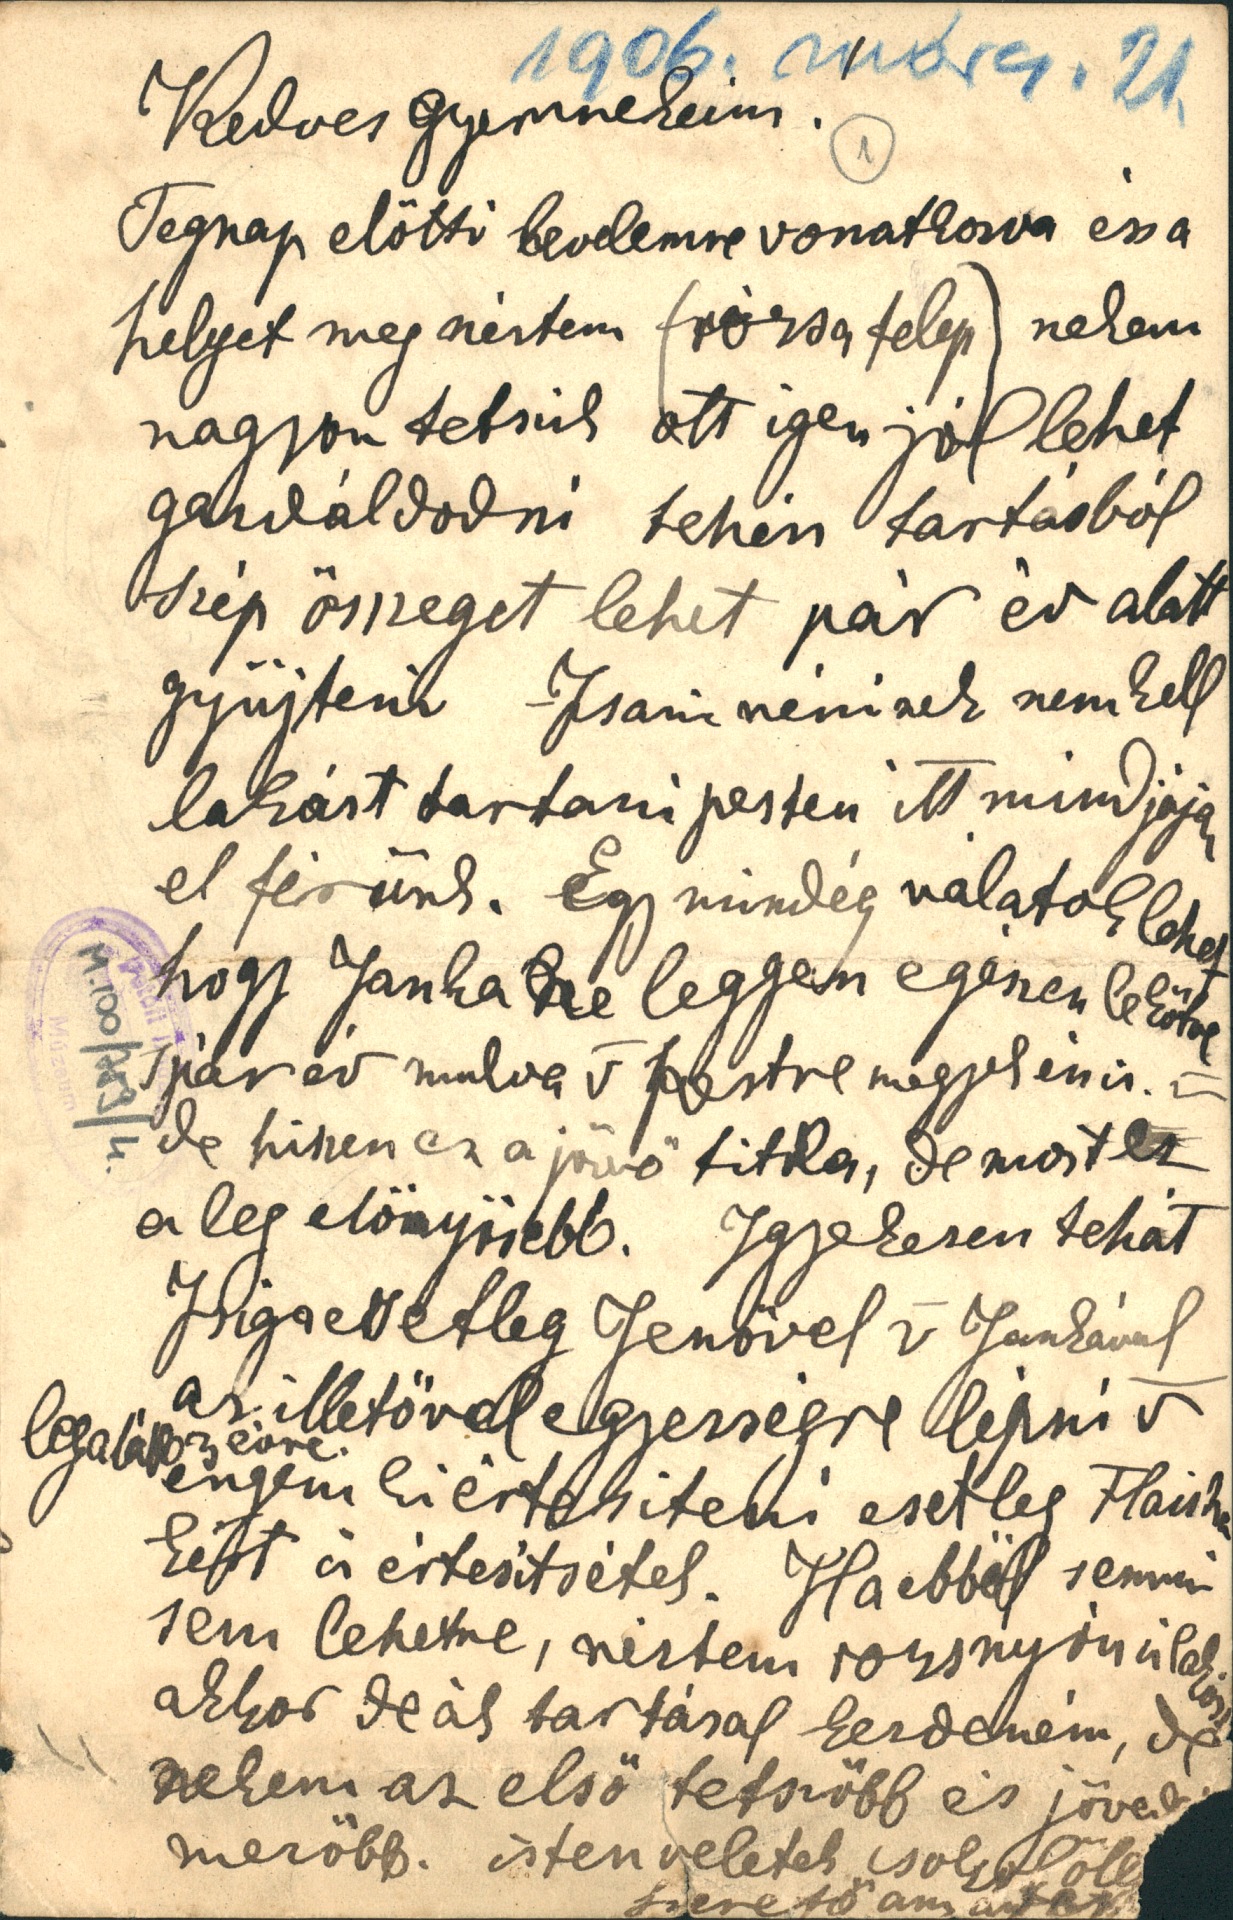 1906. márcz. 21.
Kedves gyermekeim.
1
Tegnap elötti levelemre vonatkozva és a
helyet meg néztem (rózsa telep) nekem
nagyon tetszik ott igen jól lehet
gazdáldodni tehén tartásból
szép összeget lehet pár év alatt
gyüjteni Zsani néninek nem kell
lakást tartani pesten itt mindjájan
el férünk. Egy mindég nálatok lehet
hogy Janka ne leggyen egészen lekötve
pár év mulva v pestre megyek én is.
de hiszen ez a jövö titka, de most ez
a leg elönyösebb. Igyekezen tehát
Zsiga esetleg Jenövel v Jankával
az illetövel egyezségre lépni v
legalább 3 évre.
engem ki értesiteni esetleg Flaisch
kért is értesitsétek. Ha ebböl semmi
sem lehetne, néztem rozsnyón is lakást
akkor deák tartásal kezdeném, de
nekem az elsö tetszöbb és jöved
mezöbb. isten veletek csokol ölel
szeretö anyátok
M.100/889/4.
Múzeum